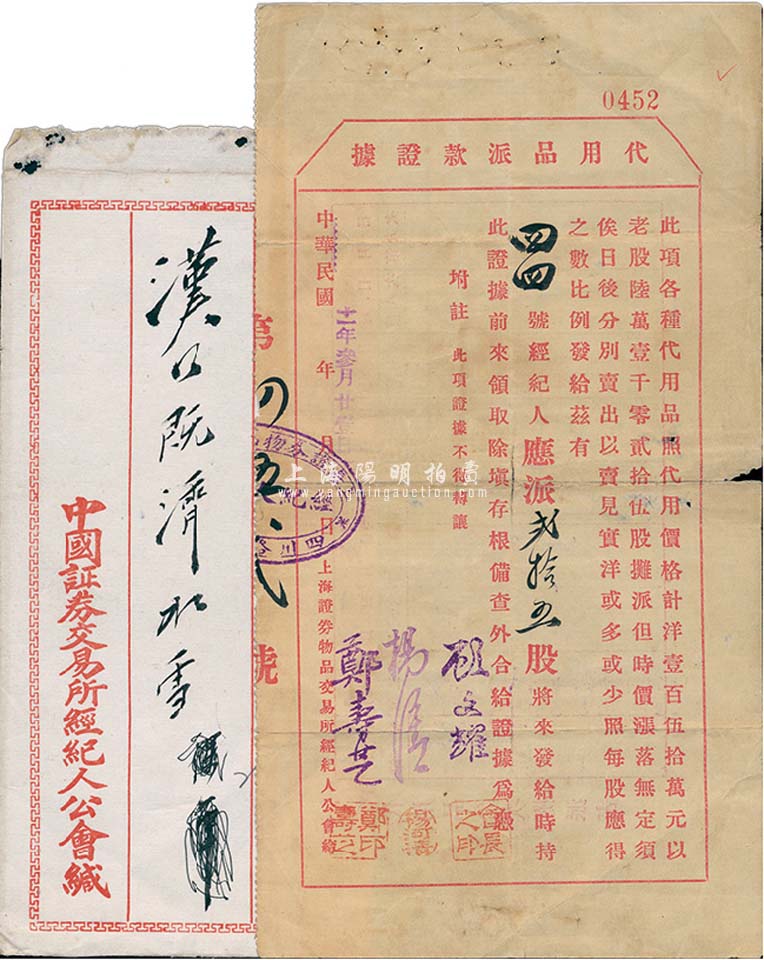 0452
代用品派款證據
此項各種代用品照代用價格計洋壹百伍拾萬元以
老股陸萬壹千零貳拾伍股攤派但時價漲落無定須
俟日後分別賣出以賣見實洋或多或少照每股應得
之數比例發給茲有
四四 號經紀人應派弍拾五股將來發給時持
此證據前來領取除填存根備查外合給證據為憑
附註 此項證據不得轉讓
中華民國 年 月 日 上海證券物品交易所經紀人公會
十一年叁月廿壹日
顧文耀
楊
鄭壽芝
會長之印
鄭壽芝印
四川路
號
上海陽明拍賣
www.yangmingauction.com
漢口既濟水
中國証券交易所經紀人公會緘